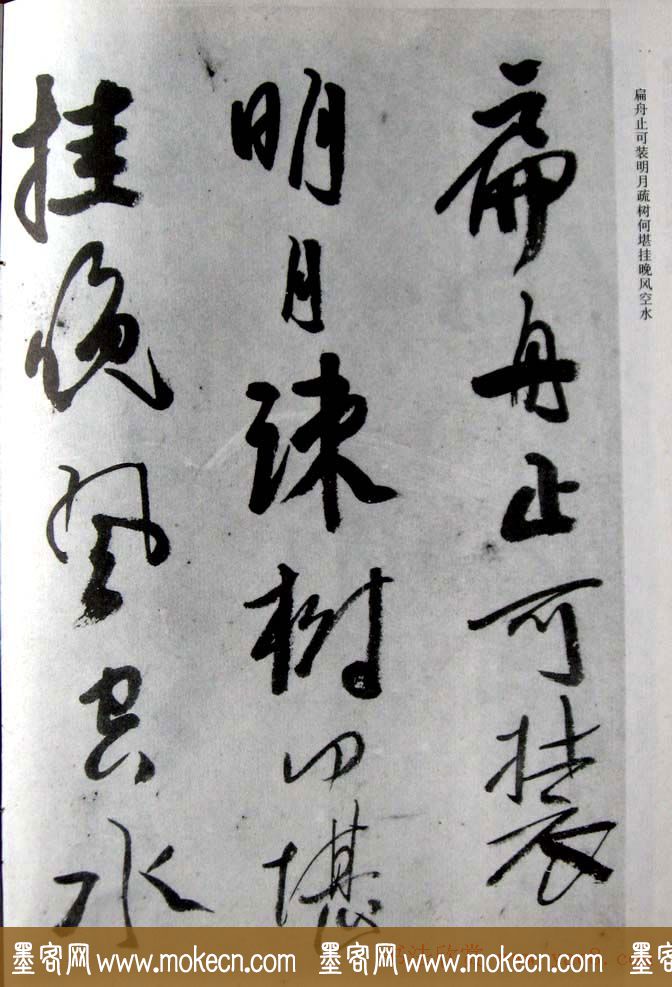 扁舟止可装明月疏树何堪挂晚风空水
扁舟止可装
明月疎树何堪
挂晚风空水
墨客网 www.mokecn.com 墨客网 www.mokecn.com